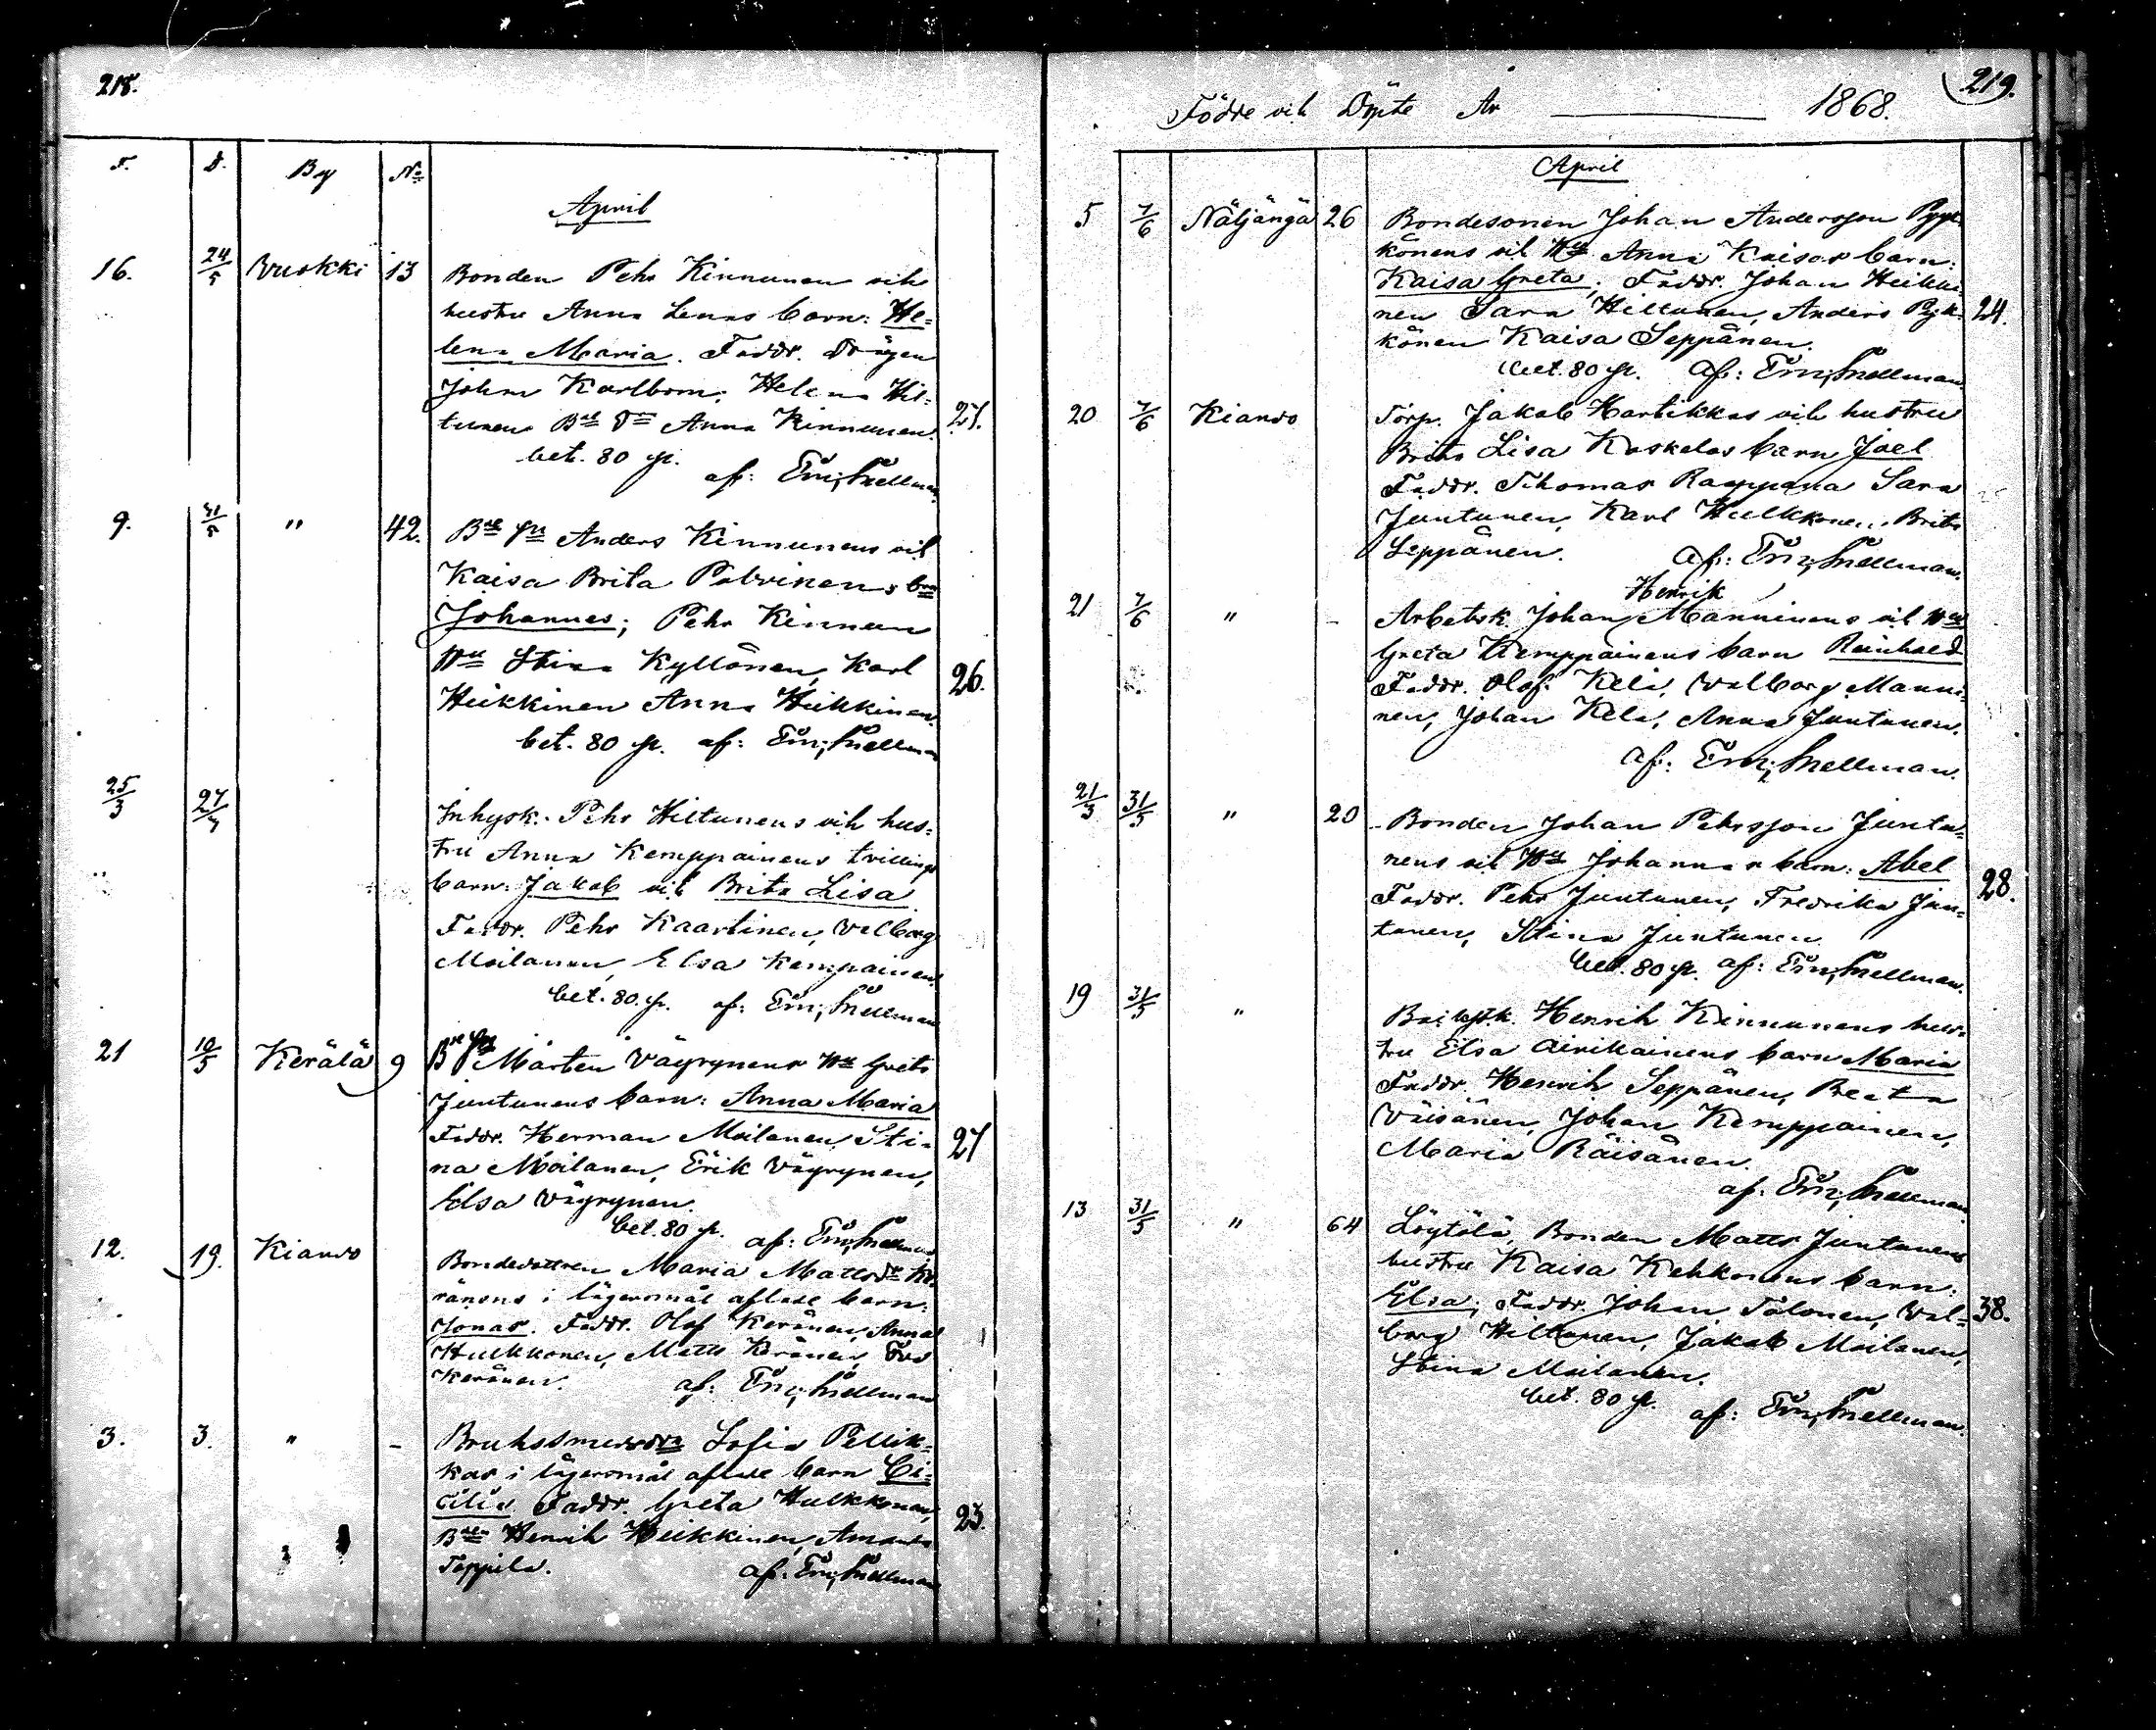 218.
F. D. By No
April
16. 24/5 Vuokki 13 Bonden Pehr Kinnunen och
hustru Anna Lenas barn: He=
lena Maria. Faddr. Drängen
Johan Karlbom, Helena Hil=
tunen Bde Dn Anna Kinnunen. 27.
bet. 80 p. af: Em; Snellman
9. 31/5 " 42. Bde sn Anders Kinnunens och
Kaisa Brita Polvinens brn
Johannes; Pehr Kinnunen
Hu Stina Kyllönen, Karl 26.
Heikkinen Anna Heikkinen.
bet. 80 p. af: Em; Snellman
25/3 27/4 Inhysk. Pehr Hiltunens och hus=
tru Anna Kemppainens tvillinge
barn: Jakob och Brita Lisa
Faddr. Pehr Kaartinen, Valborg
Moilanen, Elsa Kempainen
bet. 80. p. af: Em; Snellman
21 10/5 Kerälä 9 Bde sn Mårten Väyrynens Hu Greta
Juntunens barn: Anna Maria
Faddr. Herman Moilanen, Sti= 27
na Moilanen, Erik Väyrynen,
Elsa Väyrynen.
bet. 80 p. af: Em; Snellman
12. 19. Kiando Bondedottren Maria Mattsdr Ke=
ränens i lägersmål aflade barn:
Jonas. Faddr. Olof Keränen, Anna
Hulkkonen, Matts Keränen, Eva
Keränen. af: Em; Snellman
3. 3. " - Bruhssmeddr Sofia Pellik=
kas i lägersmål aflade barn Ce=
cilia Faddr. Greta Hulkkonen, 23.
Bden Henrik Heikkinen, Amanda
Toppila. af: Em; Snellman
219.
Födde och Döpte År 1868.
April
5 7/6 Näljängä 26 Bondesonen Johan Andersson Pyyk=
könens och Hu Anna Kaisas barn:
Kaisa Greta, Faddr. Johan Heikki=
nen Sara Hiltunen, Anders Pyyk= 24.
könen Kaisa Seppänen.
bet. 80 p. af: Em; Snellman.
20 7/6 Kiando Torp. Jakob Hartikkas och hustru
Brita Lisa Koskelas barn Joel
Faddr. Thomas Rappana Sara
Juntunen, Karl Hulkkonen, Brita
Seppänen. af: Em; Snellman.
Henrik
21 7/6 " - Arbetsk. Johan Manninens och Hu
Greta Kemppainens barn Reinhold
Faddr. Olof Kela, Valborg Manni=
nen, Johan Kela, Anna Juntunen.
af: Em; Snellman.
21/3 31/5 " 20 Bonden Johan Pehrsson Juntu=
nens och Hu Johannas barn: Abel
Faddr. Pehr Juntunen, Fredrika Jun= 28.
tunen, Stina Juntunen.
bet. 80 p. af: Em; Snellman.
19 31/5 " Henrik Kinnunens hus=
tru Elsa Airikainens barn Maria
Faddr. Henrik Seppänen, Beata
Väisänen, Johan Kemppainen,
Maria Räisänen.
af: Em; Snellman
13 31/5 " 64 Löytölä, Bonden Matts Juntunens
hustru Kaisa Kehkonens barn:
Elsa, Faddr. Johan Tolonen, Val= 38.
borg Hiltunen, Jakob Moilanen,
Stina Moilanen.
bet. 80 p. af: Em; Snellman.